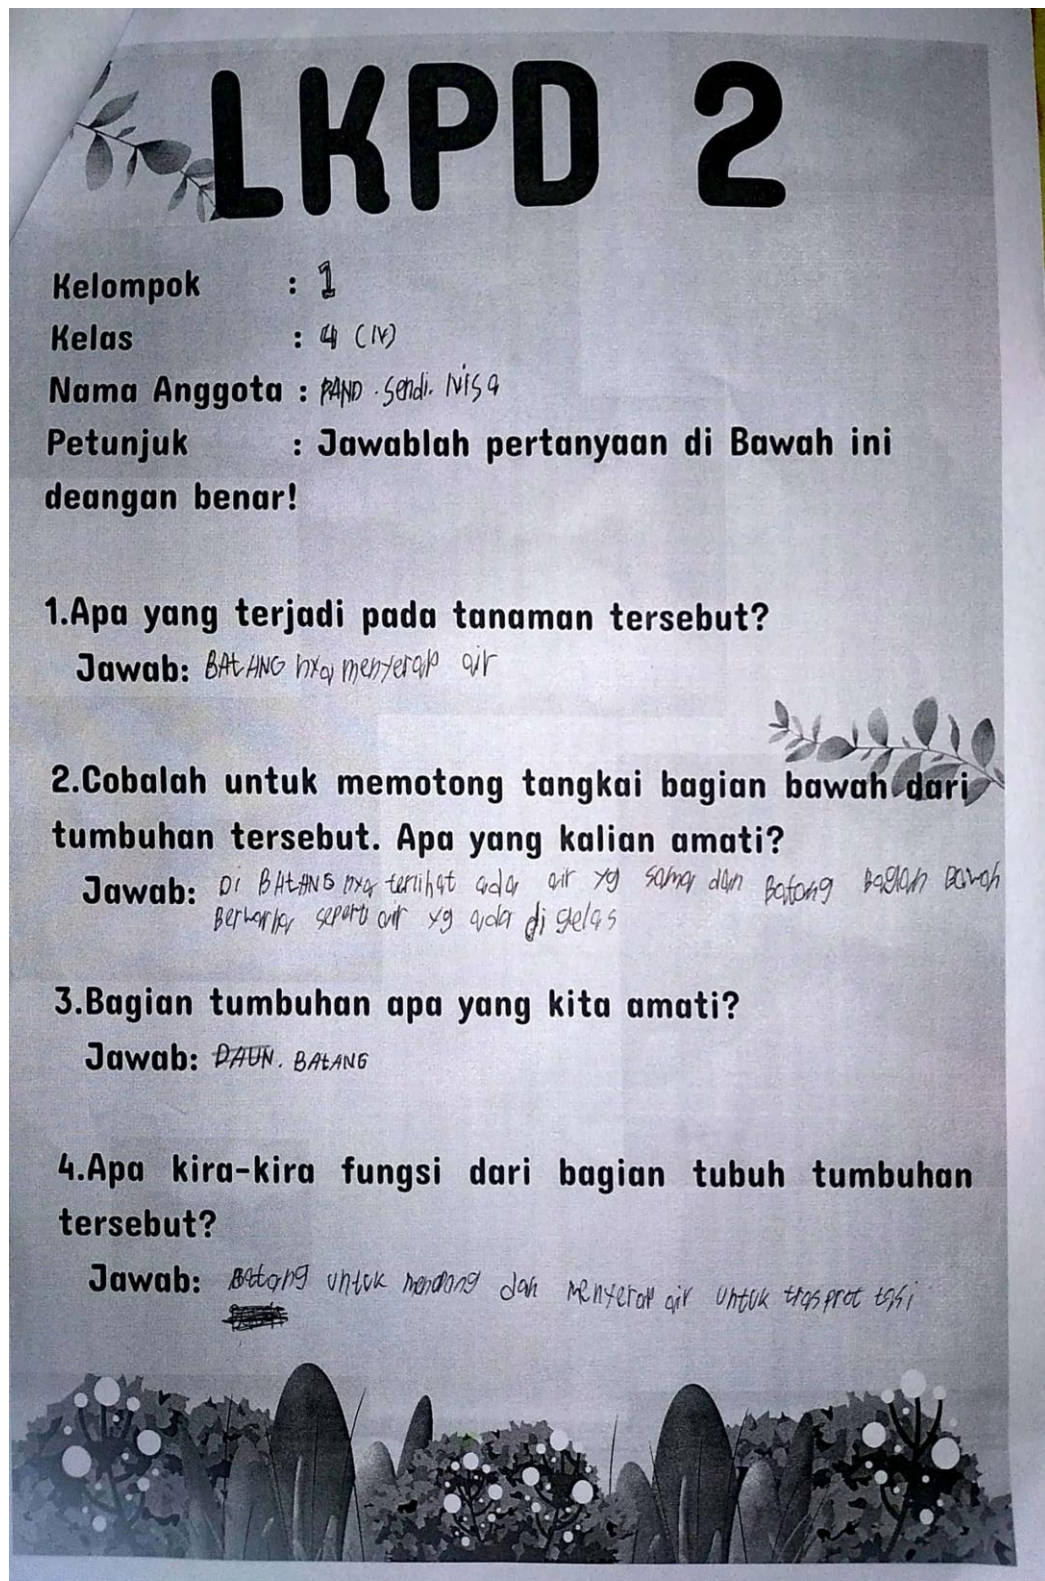 LKPD 2
Kelompok : 1
Kelas : 4 (IV)
Nama Anggota : RAND . Sendi. Nisa
Petunjuk : Jawablah pertanyaan di Bawah ini
deangan benar!
1.Apa yang terjadi pada tanaman tersebut?
Jawab: BAtANG nya menyerap air
2.Cobalah untuk memotong tangkai bagian bawah dari
tumbuhan tersebut. Apa yang kalian amati?
Jawab: Di BAtANG nya terlihat ada air yg sama dan Batang Bagian Bawah
Berwarna seperti air yg ada di gelas
3.Bagian tumbuhan apa yang kita amati?
Jawab: DAUN. BAtANG
4.Apa kira-kira fungsi dari bagian tubuh tumbuhan
tersebut?
Jawab: Batang untuk dan menyerap air untuk